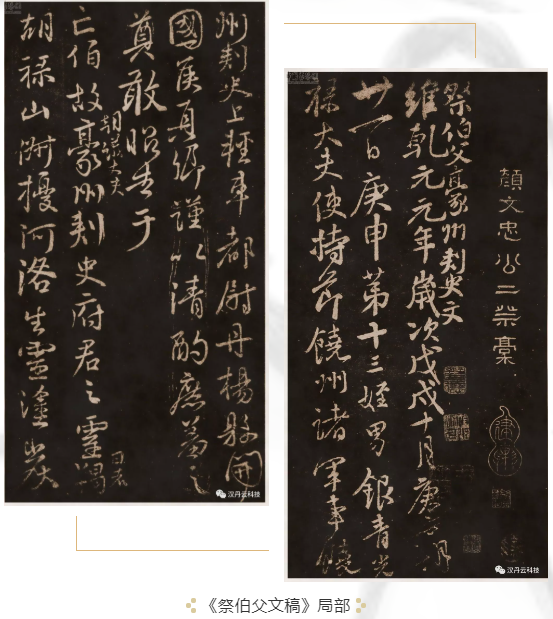 顏文忠公二祭稾
祭伯父豪州刺史文
維乾元元年歲次戊戌十月庚午朔
廿一日庚申第十三姪男銀青光
祿大夫使持節饒州諸軍事饒
汉丹云科技
州刺史上輕車都尉丹楊縣開
國侯真卿謹以清酌庶羞之
奠敢昭告于
亡伯故豪州刺史府君之靈
朝散大夫
胡祿山俶擾河洛生靈塗炭
汉丹云科技
《祭伯父文稿》局部